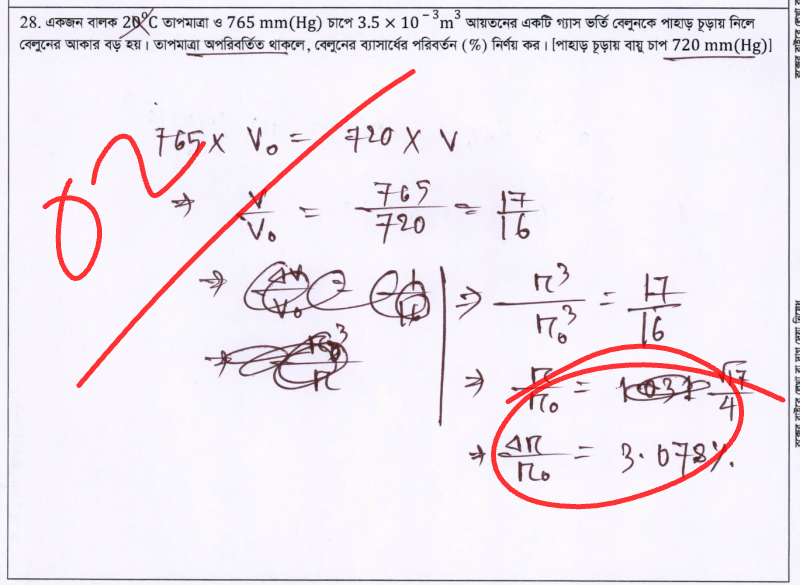 28. একজন বালক 20°C তাপমাত্রা ও 765 mm(Hg) চাপে 3.5 × 10⁻³m³ আয়তনের একটি গ্যাস ভর্তি বেলুনকে পাহাড় চূড়ায় নিলে
বেলুনের আকার বড় হয়। তাপমাত্রা অপরিবর্তিত থাকলে, বেলুনের ব্যাসার্ধের পরিবর্তন (%) নির্ণয় কর। [পাহাড় চূড়ায় বায়ু চাপ 720 mm(Hg)]
765 × V₀ = 720 × V
⇒ V/V₀ = 765/720 = 17/16
⇒ r³/r₀³ = 17/16
⇒ r/r₀ = √17/4
⇒ Δr/r₀ = 3.078%